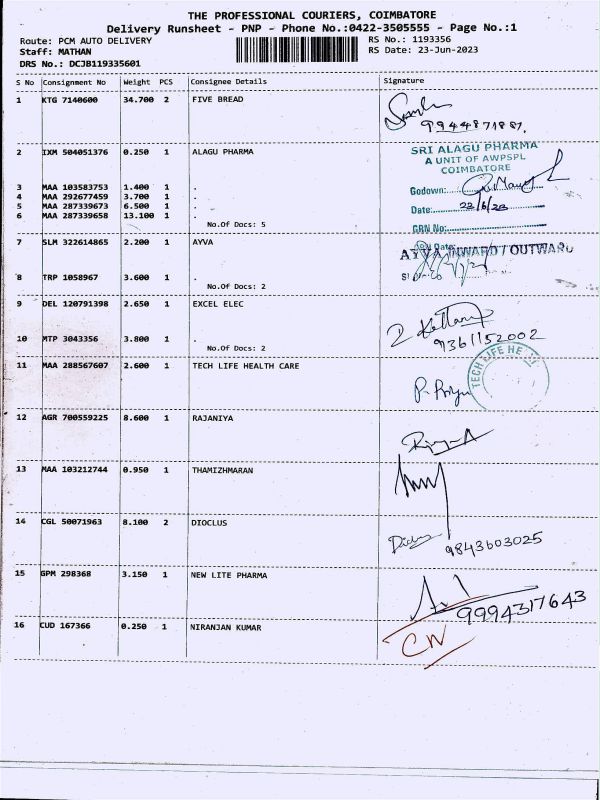 THE PROFESSIONAL COURIERS, COIMBATORE
Delivery Runsheet - PNP - Phone No.:0422-3505555 - Page No.:1
Route: PCM AUTO DELIVERY RS No.: 1193356
Staff: MATHAN RS Date: 23-Jun-2023
DRS No.: DCJB119335601
S No Consignment No Weight PCS Consignee Details Signature
1 KTG 7140600 34.700 2 FIVE BREAD
9944871887.
2 IXM 504051376 0.250 1 ALAGU PHARMA
SRI ALAGU PHARMA
A UNIT OF AWPSPL
COIMBATORE
3 MAA 103583753 1.400 1 .
Godown:
4 MAA 292677459 3.700 1 .
5 MAA 287339673 6.500 1 .
Date: 22/6/23
6 MAA 287339658 13.100 1 .
No.Of Docs: 5
GRN No:
7 SLM 322614865 2.200 1 AYVA
AYVA INWARD / OUTWARD
8 TRP 1058967 3.600 1 .
No.Of Docs: 2
9 DEL 120791398 2.650 1 EXCEL ELEC
10 MTP 3043356 3.800 1 .
9361152002
No.Of Docs: 2
11 MAA 288567607 2.600 1 TECH LIFE HEALTH CARE
TECH LIFE HE
P. Priya
12 AGR 700559225 8.600 1 RAJANIYA
13 MAA 103212744 0.950 1 THAMIZHMARAN
14 CGL 50071963 8.100 2 DIOCLUS
9843603025
15 GPM 298368 3.150 1 NEW LITE PHARMA
9994317643
16 CUD 167366 0.250 1 NIRANJAN KUMAR
CN